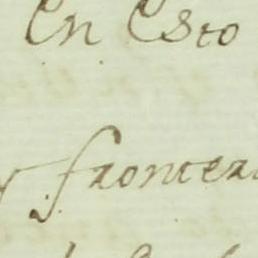 En Esto
y frontera